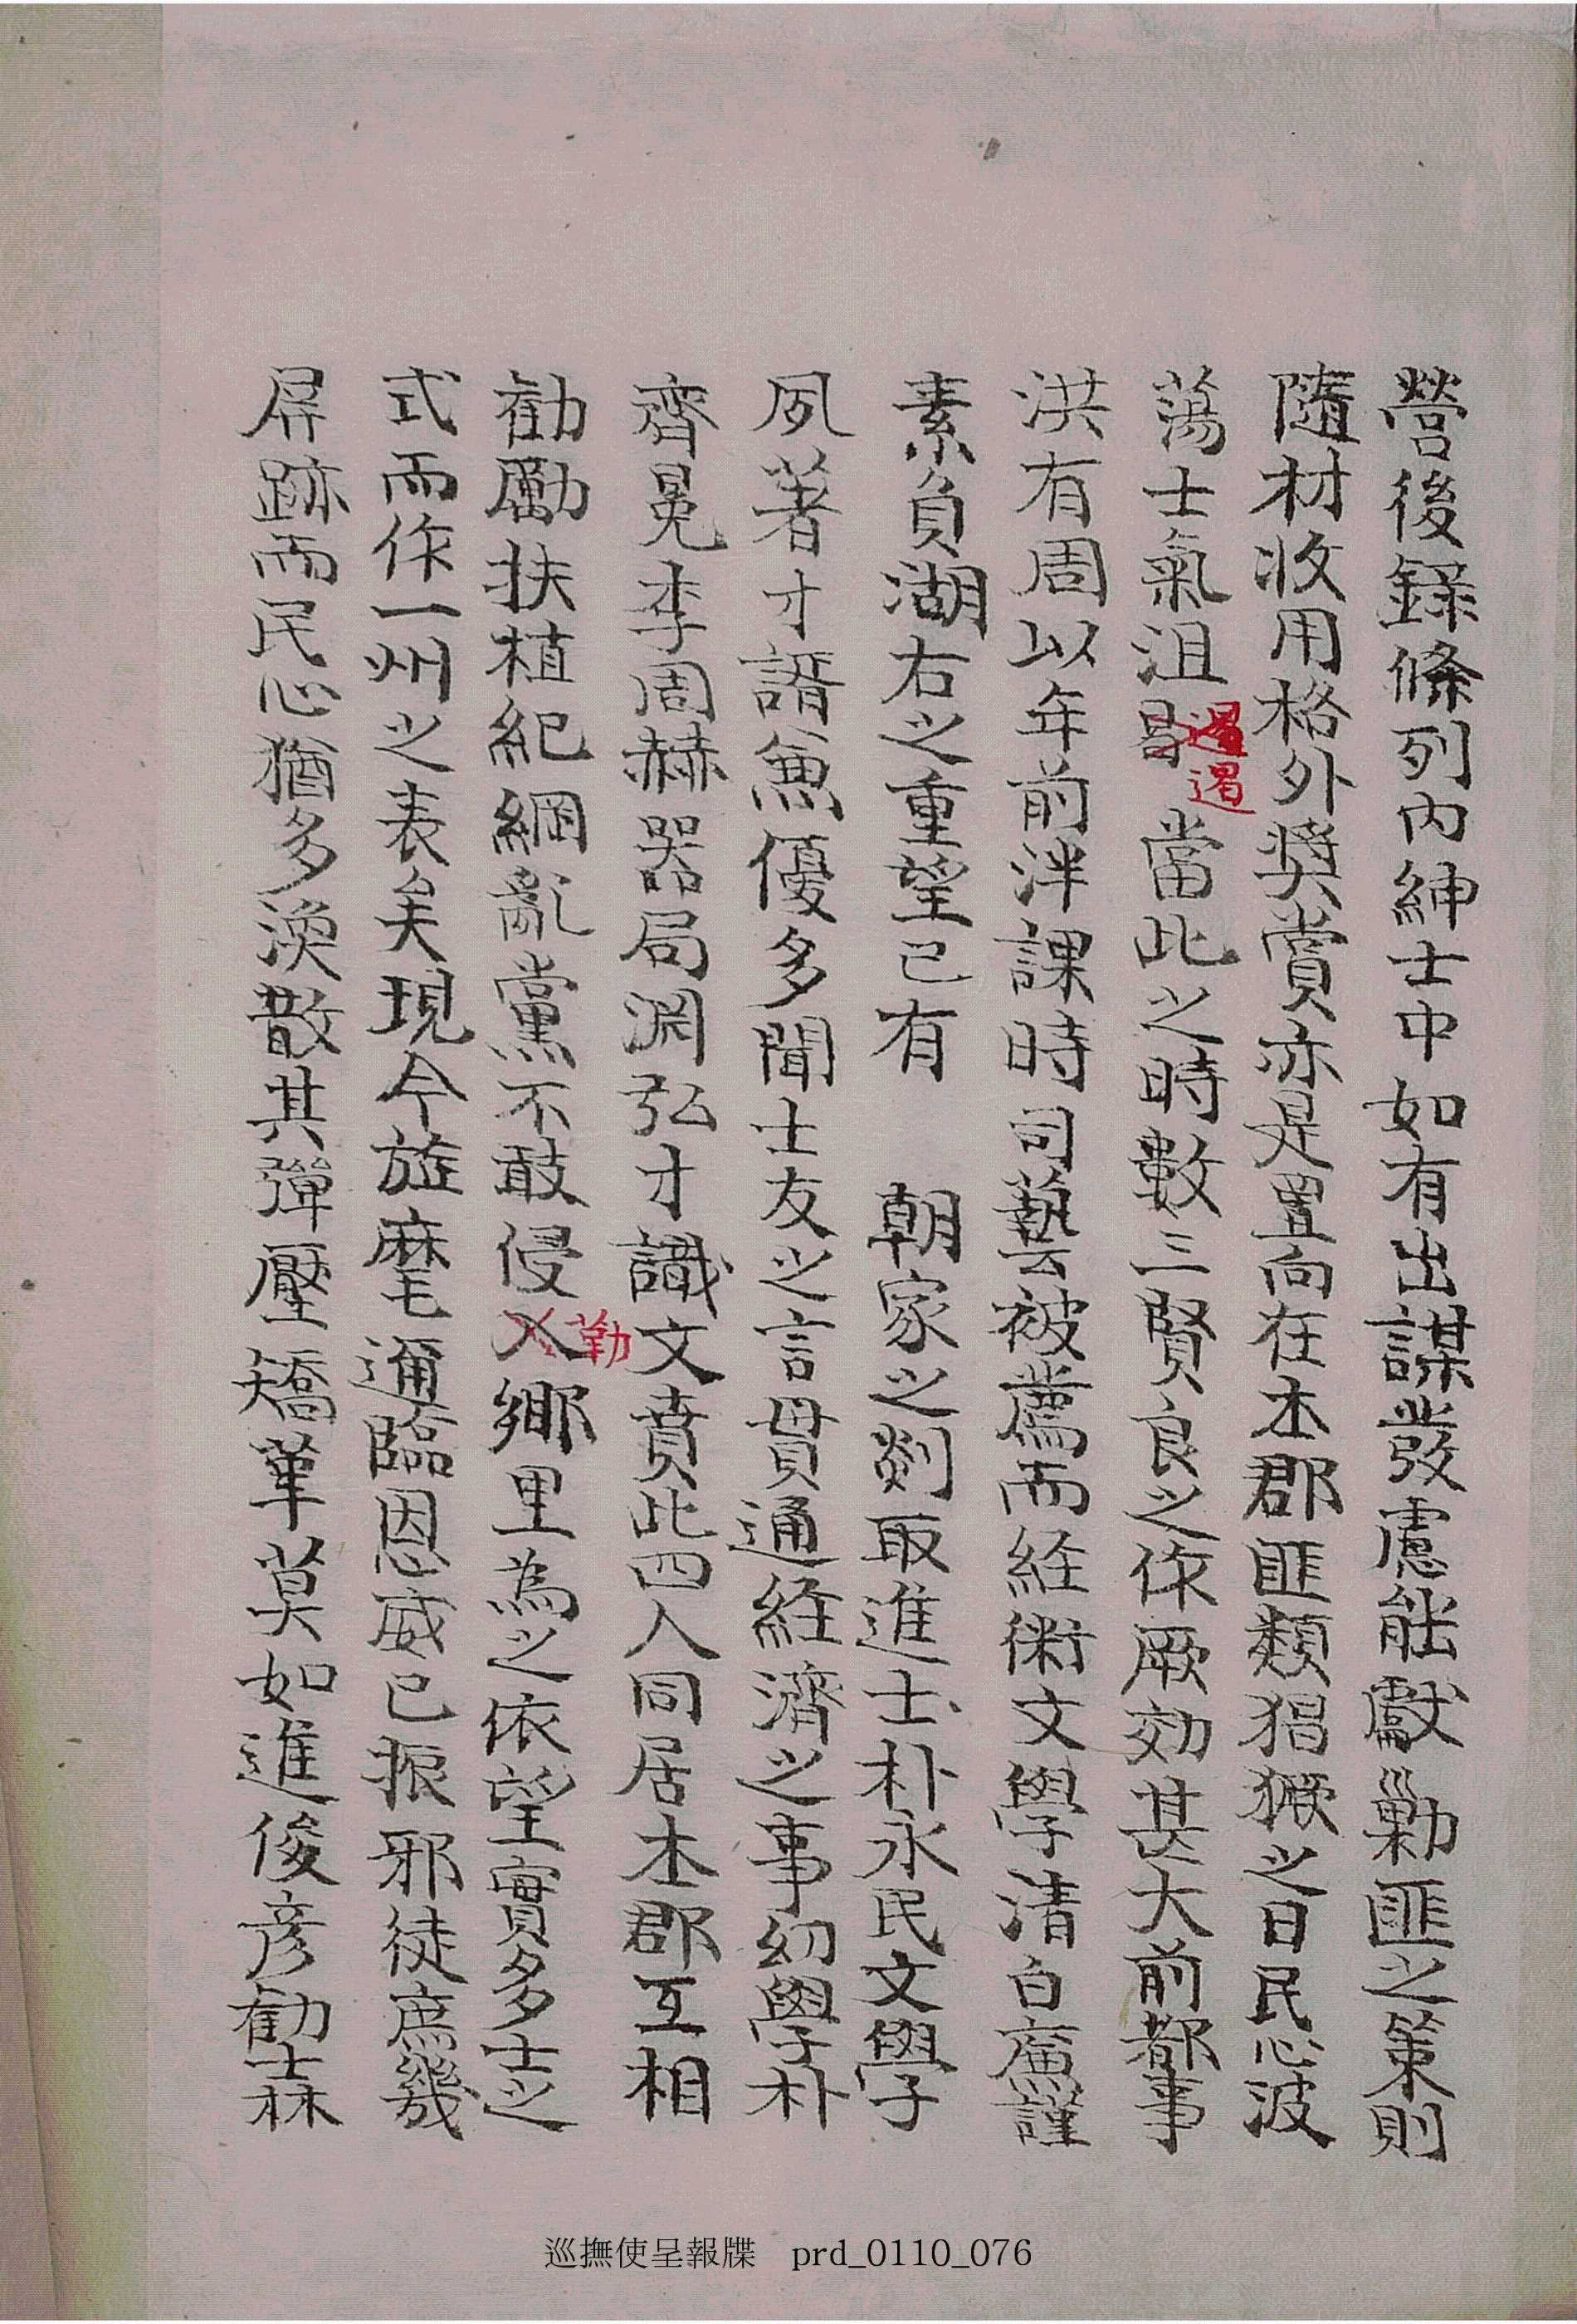 營後錄條列內紳士中如有出謀發慮能獻勦匪之策則
隨材收用格外奬賞亦是置向在本郡匪類猖獗之日民心波
蕩士氣沮遏當此之時數三賢良之作厥効甚大前都事
洪有周以年前泮課時司藝被薦而經術文學清白廉謹
素負湖右之重望已有 朝家之剡取進士朴永民文學
夙著才諝兼優多聞士友之言毌貫通經濟之事幼學朴
齊冕李周赫器局淵弘才識文賁此四人同居本郡互相
勸勵扶植紀綱亂黨不敢侵勒鄉里爲之依望實多士之
式而作一州之表矣現今旌麾邇臨恩威已振邪徒庶幾
屛跡而民心猶多渙散其彈壓矯革莫如進俊彦勸士林
巡撫使呈報牒 prd_0110_076